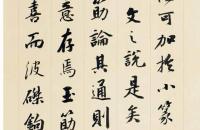 可加於小篆
文之說是矣
筋論其通則
意存焉玉筋
喜而波磔鉤